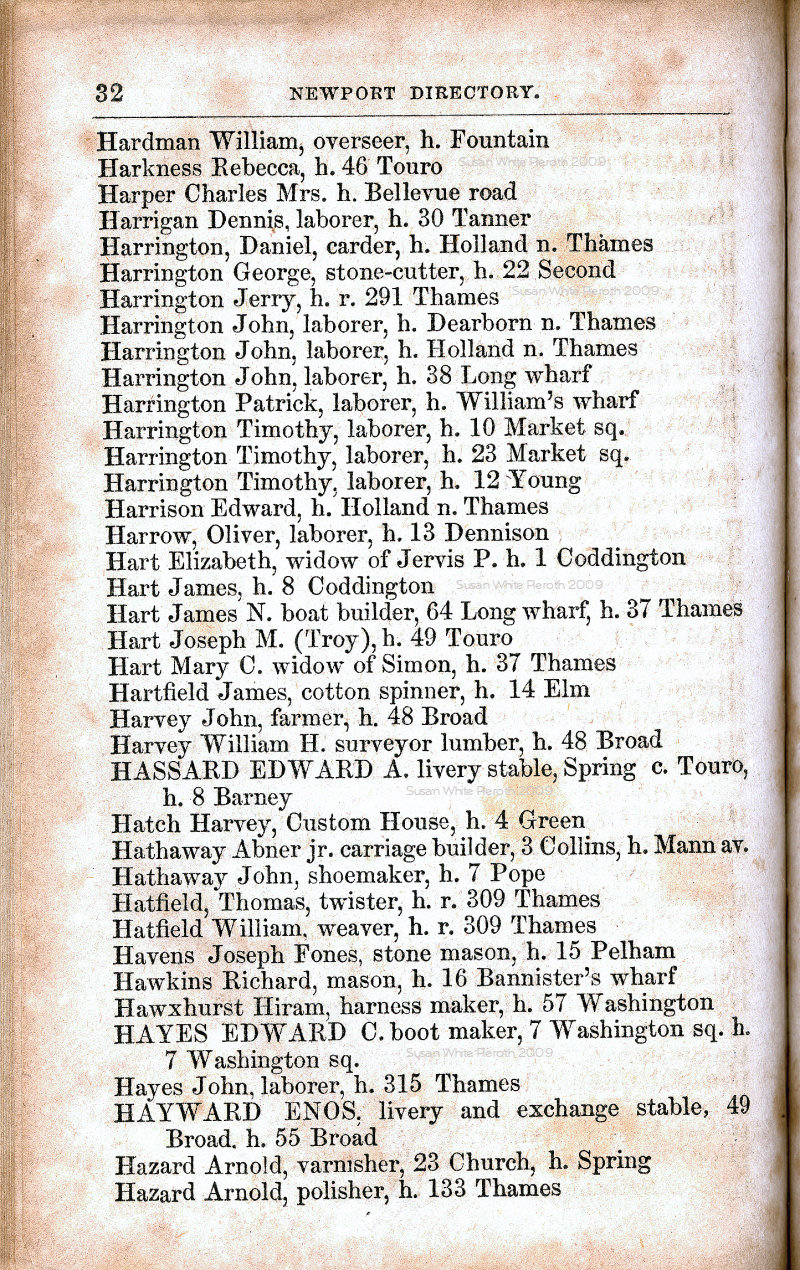 32 NEWPORT DIRECTORY.
Hardman William, overseer, h. Fountain
Harkness Rebecca, h. 46 Touro
Susan White Pieroth 2009
Harper Charles Mrs. h. Bellevue road
Harrigan Dennis, laborer, h. 30 Tanner
Harrington, Daniel, carder, h. Holland n. Thames
Harrington George, stone-cutter, h. 22 Second
Harrington Jerry, h. r. 291 Thames
Susan White Pieroth 2009
Harrington John, laborer, h. Dearborn n. Thames
Harrington John, laborer, h. Holland n. Thames
Harrington John, laborer, h. 38 Long wharf
Harrington Patrick, laborer, h. William's wharf
Harrington Timothy, laborer, h. 10 Market sq.
Harrington Timothy, laborer, h. 23 Market sq.
Harrington Timothy, laborer, h. 12 Young
Harrison Edward, h. Holland n. Thames
Harrow, Oliver, laborer, h. 13 Dennison
Hart Elizabeth, widow of Jervis P. h. 1 Coddington
Hart James, h. 8 Coddington
Susan White Pieroth 2009
Hart James N. boat builder, 64 Long wharf, h. 37 Thames
Hart Joseph M. (Troy), h. 49 Touro
Hart Mary C. widow of Simon, h. 37 Thames
Hartfield James, cotton spinner, h. 14 Elm
Harvey John, farmer, h. 48 Broad
Harvey William H. surveyor lumber, h. 48 Broad
HASSARD EDWARD A. livery stable, Spring c. Touro,
h. 8 Barney
Susan White Pieroth 2009
Hatch Harvey, Custom House, h. 4 Green
Hathaway Abner jr. carriage builder, 3 Collins, h. Mann av.
Hathaway John, shoemaker, h. 7 Pope
Hatfield, Thomas, twister, h. r. 309 Thames
Hatfield William, weaver, h. r. 309 Thames
Havens Joseph Fones, stone mason, h. 15 Pelham
Hawkins Richard, mason, h. 16 Bannister's wharf
Hawxhurst Hiram, harness maker, h. 57 Washington
HAYES EDWARD C. boot maker, 7 Washington sq. h.
7 Washington sq.
Susan White Pieroth 2009
Hayes John, laborer, h. 315 Thames
HAYWARD ENOS. livery and exchange stable, 49
Broad. h. 55 Broad
Hazard Arnold, varnisher, 23 Church, h. Spring
Hazard Arnold, polisher, h. 133 Thames